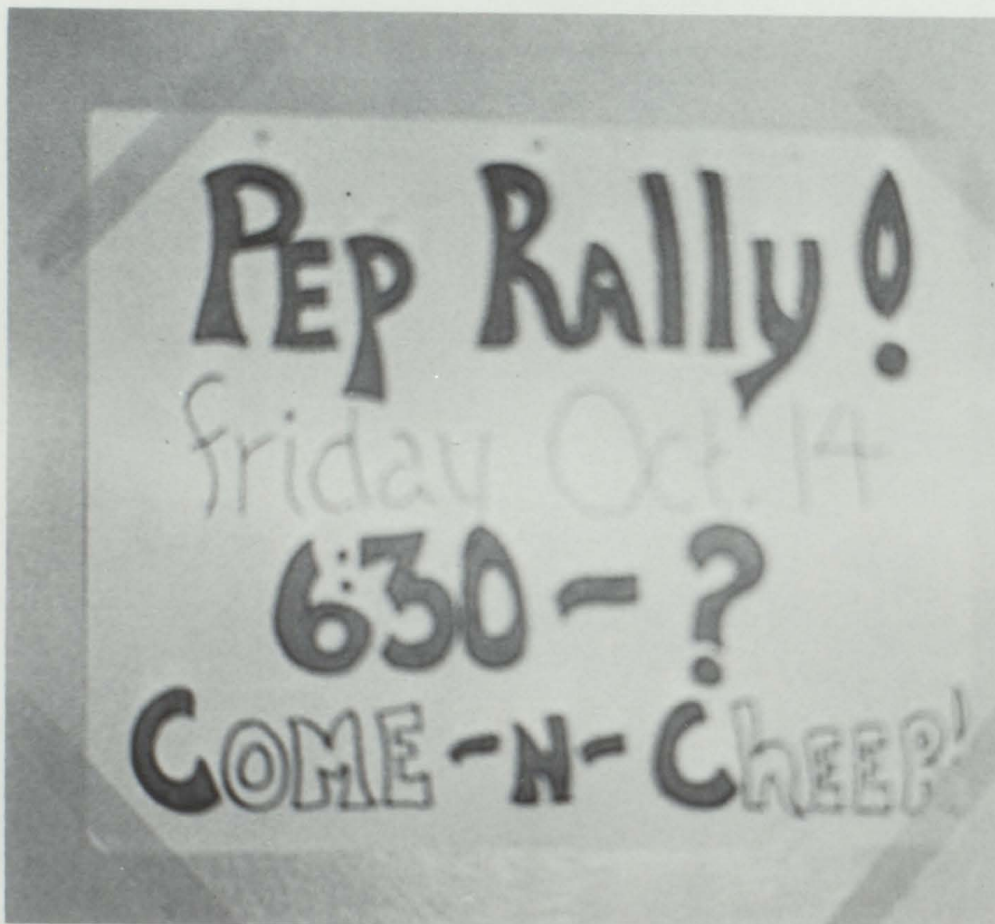 PEP RAlly!
friday Oct. 14
6:30 - ?
COME -N- ChEEP!